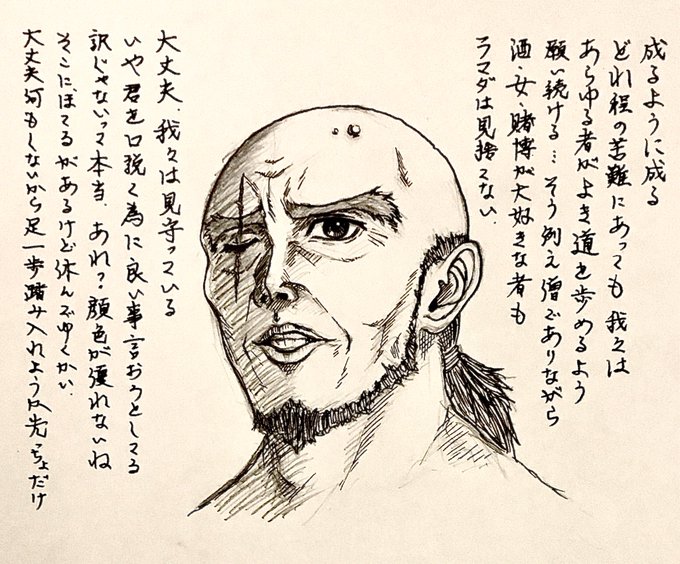 成るように成る
どれ程の苦難にあっても我々は
あらゆる者がよき道を歩めるよう
願い続ける…そう例え僧でありながら
酒・女・賭博が大好きな者も
ラマダは見捨てない.
大丈夫.我々は見守っている
いや君を口説く為に良い事言おうとしてる
訳じゃないって本当.あれ?顔色が優れないね
そこにほてるがあるけど休んでゆくかい.
大丈夫何もしないから足一歩踏み入れようか先っちょだけ